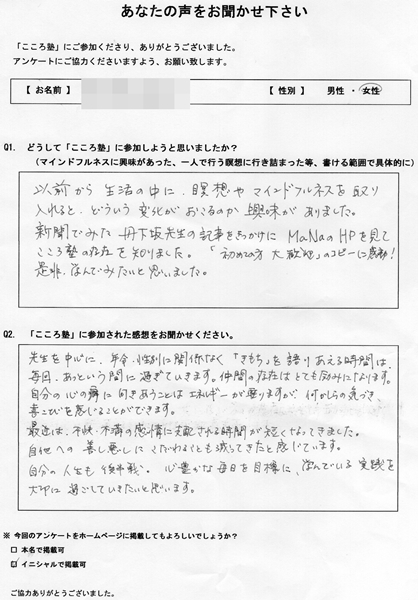 あなたの声をお聞かせ下さい
「こころ塾」にご参加くださり、ありがとうございました。
アンケートにご協力くださいますよう、お願い致します。
【 お名前 】 【 性別 】 男性 ・ 女性
Q1. どうして「こころ塾」に参加しようと思いましたか？
（マインドフルネスに興味があった、一人で行う瞑想に行き詰まった等、書ける範囲で具体的に）
以前から 生活の中に、瞑想や マインドフルネスを取り
入れると、どういう 変化が おこるのか 興味が ありました。
新聞でみた 丹下坂先生の記事をきっかけに MaNaのHPを見て
こころ塾の存在を知りました。「初めての方 大歓迎」のコピーに感動!
是非、学んでみたいと 思いました。
Q2. 「こころ塾」に参加された感想をお聞かせください。
先生を中心に、年令・性別に関係なく「きもち」を語りあえる時間は、
毎回、あっという間に 過ぎていきます。仲間の存在は とても励みになります。
自分の心の癖に 向きあうことは エネルギーが要りますが、何かしらの気づき、
喜こびを感じることができます。
最近は、不快・不満の感情に支配される時間が 短くなってきました。
自他への 善し悪しに こだわることも減ってきたと 感じています。
自分の人生も 後半戦。 心豊かな毎日を目標に、学んでいる 実践を
大切に 過ごしていきたいと思います。
※ 今回のアンケートをホームページに掲載してもよろしいでしょうか？
□ 本名で掲載可
☑ イニシャルで掲載可
ご協力ありがとうございました。